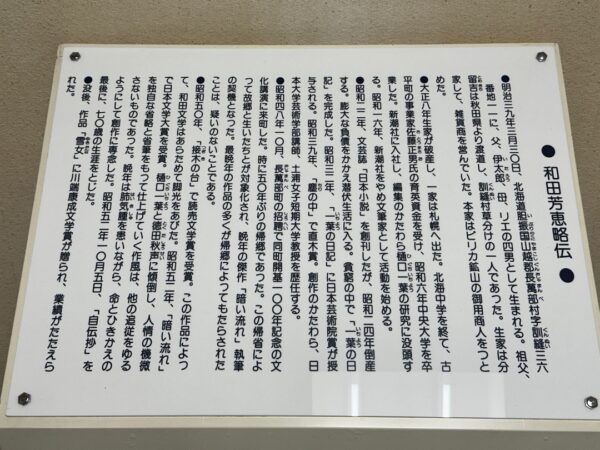 ● 和田芳恵略伝 ●
●明治三九年三月三〇日、北海道胆振国山越郡長万部村字訓縫三六
番地一一に、父、伊太郎、母、リエの四男として生まれる。祖父、
留吉は秋田県より渡道し、訓縫村草分けの一人であった。生家は分
家して、雑貨商を営んでいた。本家はピリカ鉱山の御用商人をつと
めた。
●大正八年生家が破産し、一家は札幌へ出た。北海中学を終て、古
平町の事業家佐藤正男氏の育英資金を受け、昭和六年中央大学を卒
業した。新潮社に入社し、編集のかたわら樋口一葉の研究に没頭す
る。昭和一六年、新潮社をやめ文筆家として活動を始める。
●昭和二二年、文芸誌「日本小説」を創刊したが、昭和二四年倒産
する。膨大な負債をかかえ潜伏生活に入る。貧窮の中で「一葉の日
記」を完成した。昭和三二年、「一葉の日記」に日本芸術院賞が授
与される。昭和三九年、「塵の中」で直木賞。創作のかたわら、日
本大学芸術学部講師、土浦女子短期大学教授を歴任する。
●昭和四八年一〇月、長萬部町の招聘で同町開基一〇〇年記念の文
化講演に来町した。時に五〇年ぶりの帰郷であった。この帰省によ
って故郷と生いたちとが対象化され、晩年の傑作「暗い流れ」執筆
の契機となった。最晩年の作品の多くが帰郷によってもたらされた
ことは、疑いのないことである。
●昭和五〇年、「接木の台」で読売文学賞を受賞。この作品によっ
て、和田文学はあらためて脚光をあびた。昭和五二年、「暗い流れ」
で日本文学大賞を受賞。樋口一葉と徳田秋声に傾倒し、人情の機微
を独自な省略と省筆をもって仕上げていく作風は、他の追従をゆる
さないものであった。晩年は肺気腫を患いながら、命とひきかえの
ようにして創作に専念した。昭和五二年一〇月五日、「自伝抄」を
最後に、七〇歳の生涯をとじた。
●没後、作品「雪女」に川端康成文学賞が贈られ、業績がたたえら
れた。